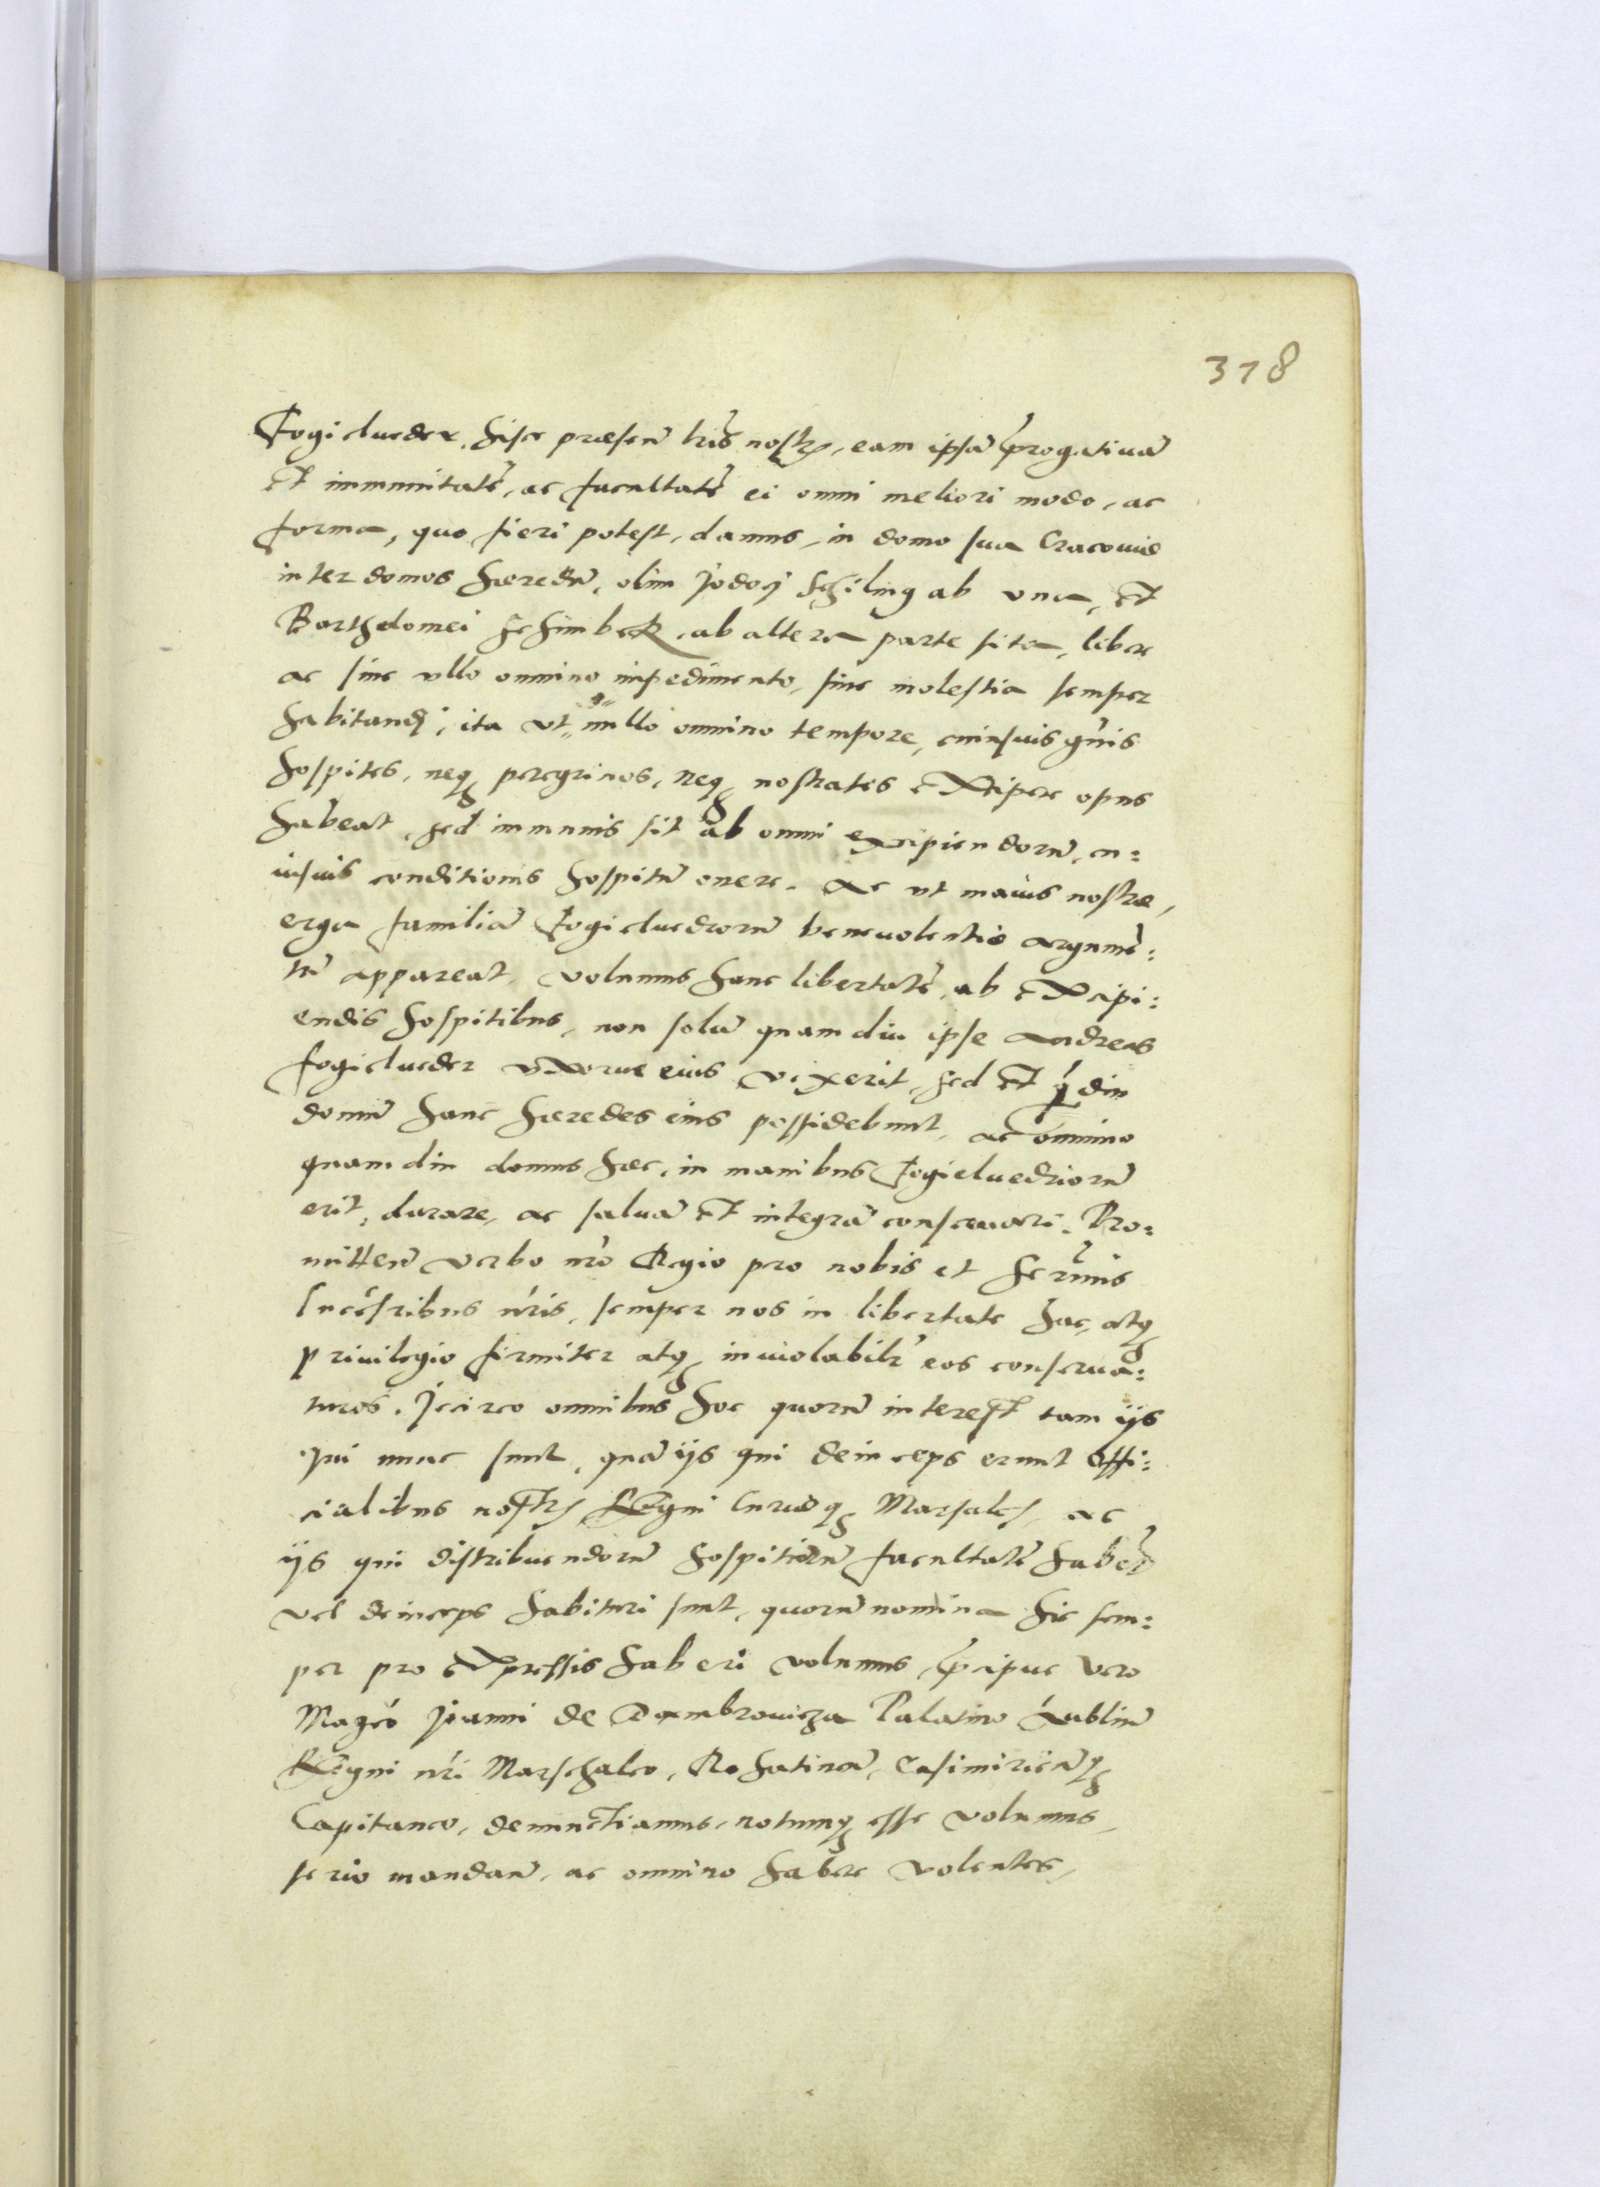 318
Fogieluedex hisce præsen̄ lr̄is nostrꝭ, eam ipsā p̄rogatiuā
et immunitatē, ac facultatē ei omni meliori modo, ac
forma, quo fieri potest, damus, in domo sua Cracouiæ
inter domos hæredū, olim Jodoci Schiling ab una, et
Bartholomei ab altera parte sita, libere
ac sine ullo omnino impedimento, sine molestia semper
habitandi, ita ut nullo omnino tempore, cuiusuis gn̄is
hospites, neqꝫ peregrinos, neqꝫ nostrates excipere opus
habeat, sed immunis sit ab omni excipiendorū, cu:
iusuis conditionis hospitū onere. Ac ut maius nostræ,
erga familiā Fogieluedrorū beneuolentiæ argumē:
tū appareat, volumus hanc libertatē, ab excipi:
endis hospitibus, non solū quam diu ipse Andreas
Fogielueder uxorue eius vixerit, sed et q̄ diu
domū hanc hæredes eius possidebunt, ac omnino
quam diu domus hæc, in manibus Fogieluedriorū
erit, durare, ac saluā et integrā conseruari. Pro:
mitten̄ verbo nr̄o Regio pro nobis et Ser̄mis
Succēsribus nr̄is, semper nos in libertate hac, atqꝫ
priuilegio firmiter atqꝫ inuiolabilr̄ eos conserua:
turos. Jccirco omnibus hoc quorū interest tam ijs
qui nunc sunt, quā ijs qui deinceps erunt Offi:
cialibus nostrꝭ Regni Curiæqꝫ Marsalcꝭ, ac
ijs qui distribuendorū hospitiorū facultatē haben̄t
vel deinceps habituri sunt, quorū nomina hic sem:
per pro expressis haberi volumus, p̄cipue vero
Magco Joanni de Dambrouicza Palatino Lublin̄
Regni nr̄i Marschalco, Rohatinen̄, Casimirien̄qꝫ
Capitaneo, denunctiamus, notumqꝫ esse volumus,
serio mandan̄, ac omnino habere volentes,